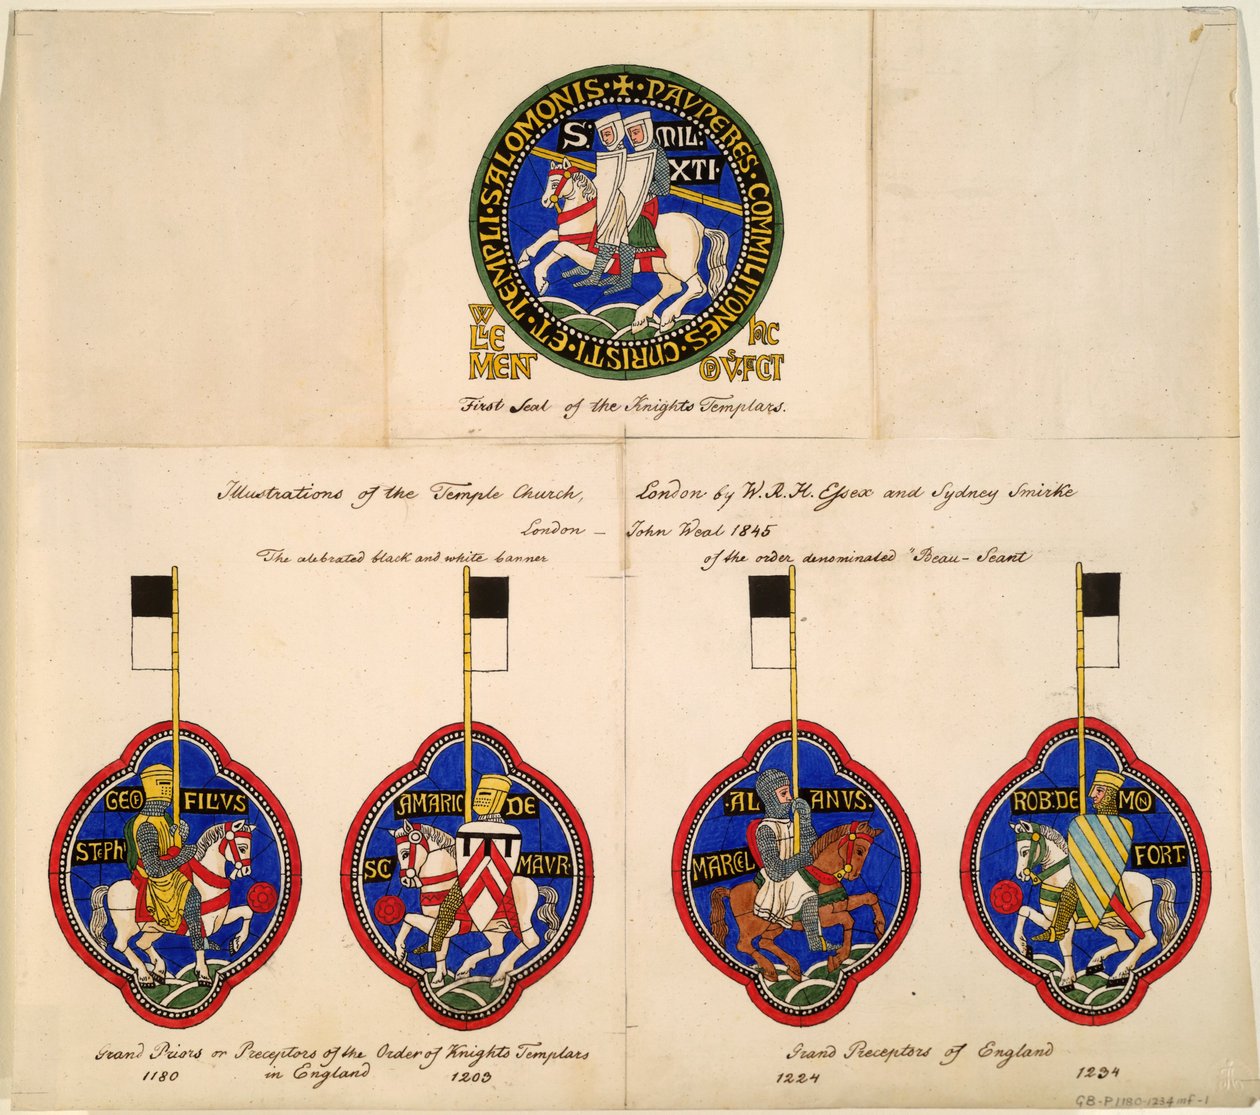 ✠ PAVPERES · COMMILITONES · CHRISTI · ET · TEMPLI · SALOMONIS ·
S: MIL:
XTI ·
WLLE
MENT
hc
OPVS · FACIT
First Seal of the Knights Templars.
Illustrations of the Temple Church, London by W. R. H. Essex and Sydney Smirke
London – John Weal 1845
The celebrated black and white banner of the order denominated "Beau-Seant
GEOF FILIVS
STEPH
AMARIC DE
SC MAVR ·
· AL ANVS ·
MARCEL
ROB · DE MON
FORT ·
Grand Priors or Preceptors of the Order of Knights Templars
in England
1180 1203
Grand Preceptors of England
1224 1234
GB-P1180-1234mf-1